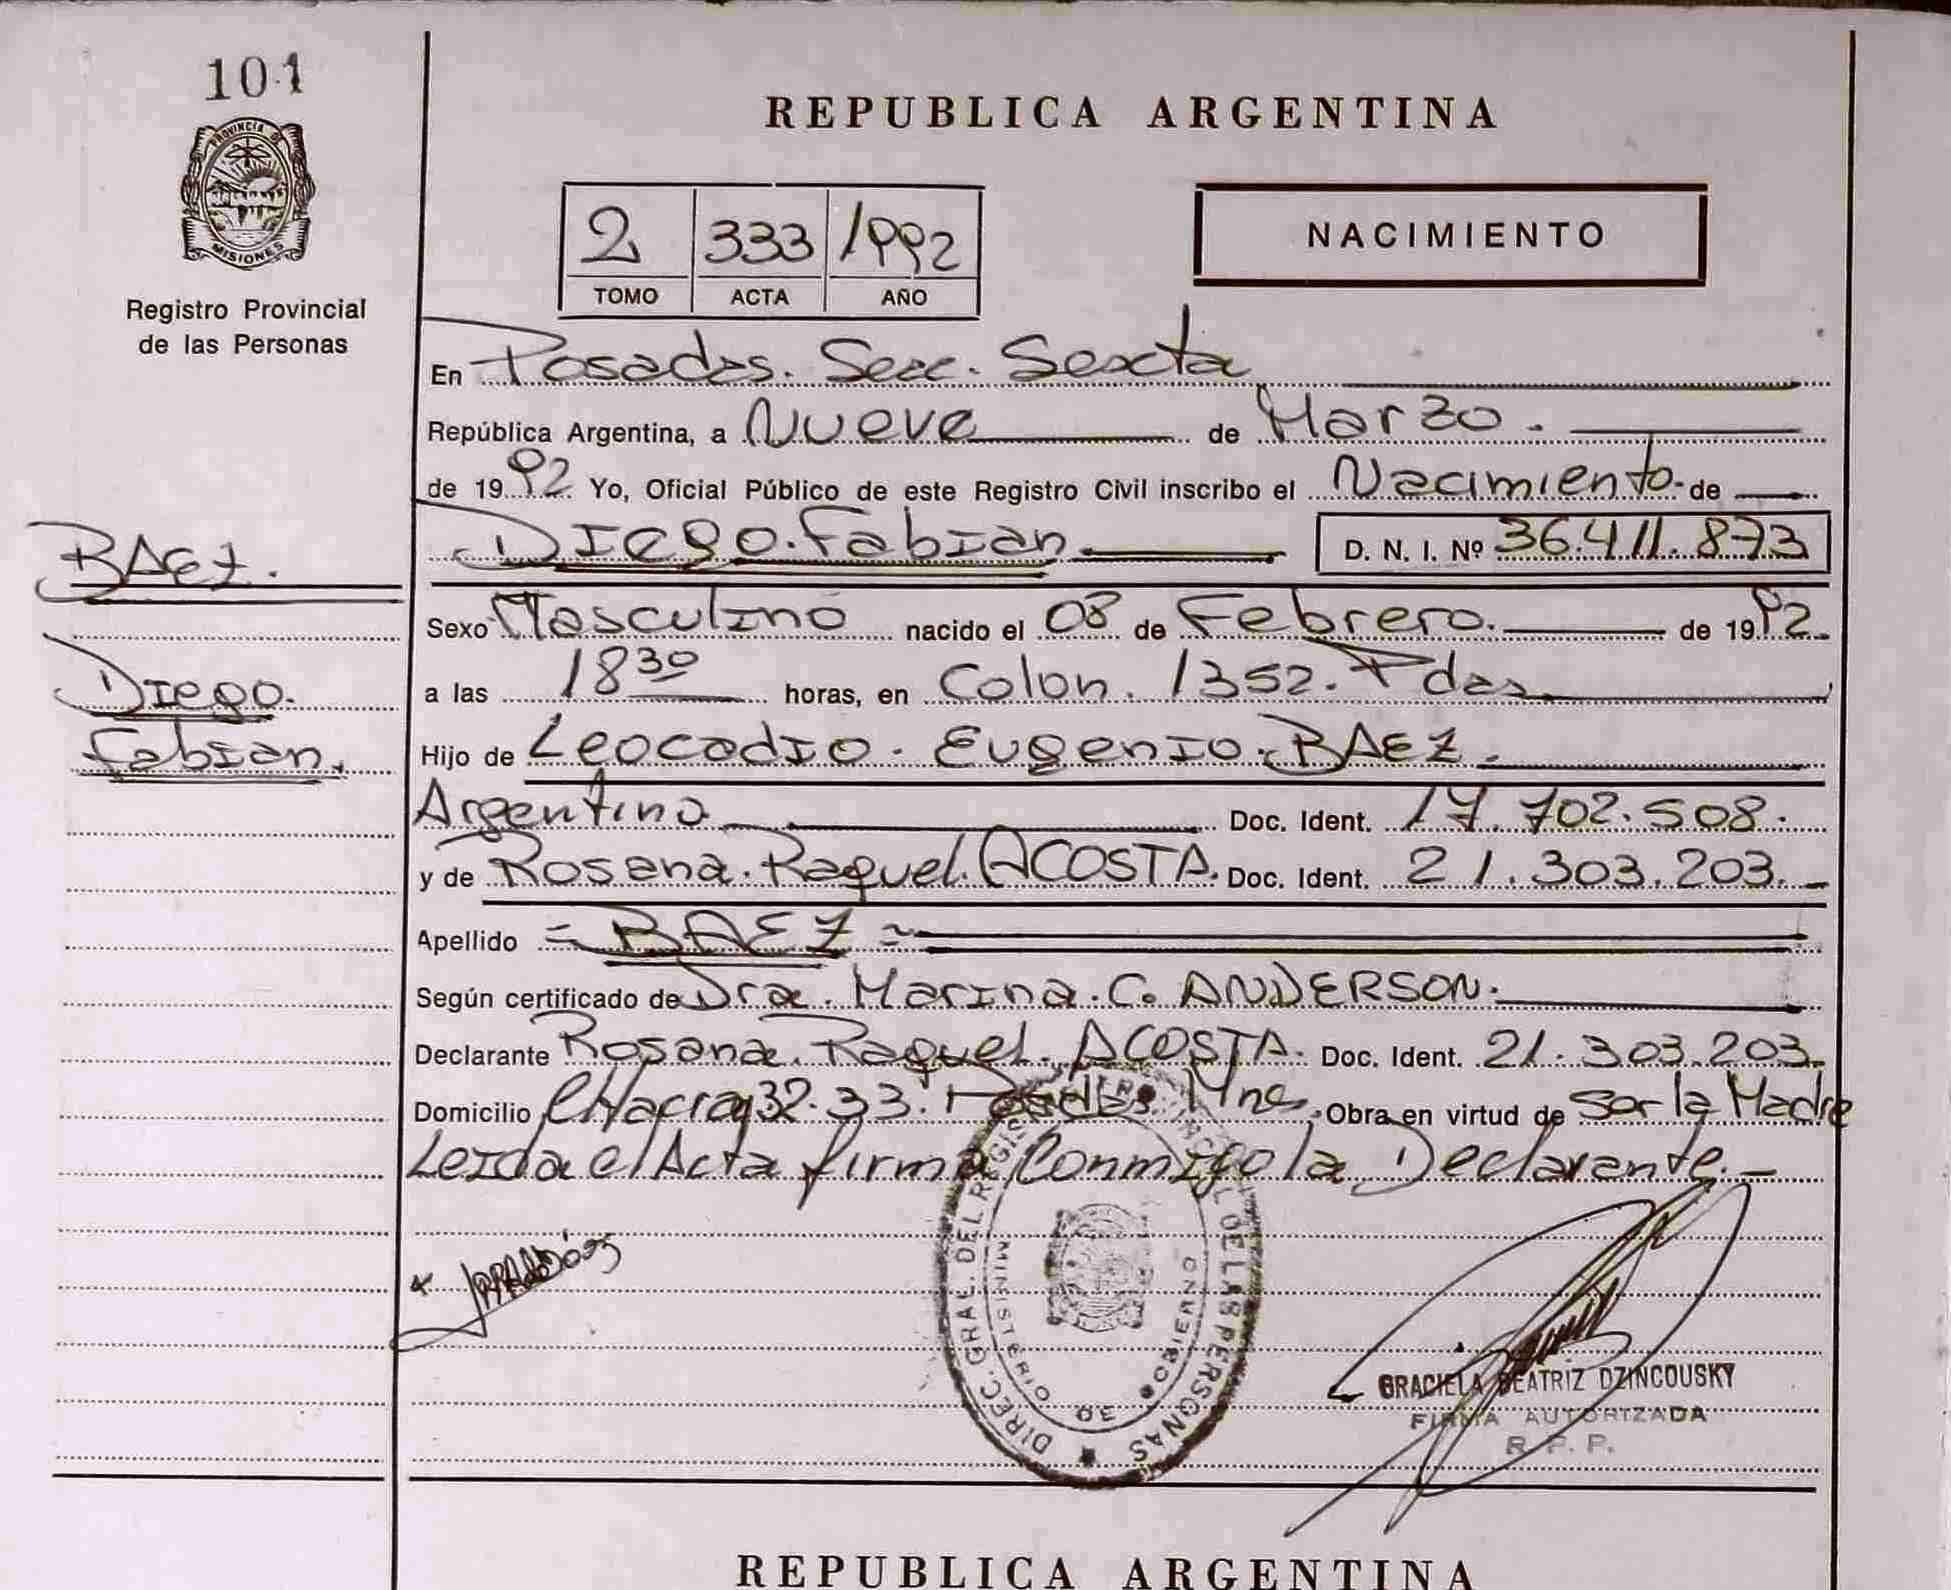 101
PROVINCIA DE
MISIONES
Registro Provincial
de las Personas
BAEZ.
Diego.
Fabian.
REPUBLICA ARGENTINA
2 333 1992
TOMO ACTA AÑO
NACIMIENTO
En Posadas. Secc. Sexta
República Argentina, a Nueve de Marzo.
de 1992 Yo, Oficial Público de este Registro Civil inscribo el Nacimiento de
Diego. Fabian D. N. I. Nº 36.411.873
Sexo Masculino nacido el 08 de Febrero. de 1992
a las 18 30 horas, en Colon. 1352. Pdas
Hijo de Leocadio. Eugenio. BAEZ.
Argentino Doc. Ident. 17.702.508.
y de Rosana. Raquel. ACOSTA. Doc. Ident. 21.303.203.
Apellido = BAEZ =
Según certificado de Dra. Marina. C. ANDERSON.
Declarante Rosana. Raquel. ACOSTA. Doc. Ident. 21.303.203.
Domicilio CHacra 32.33. Posadas. Mnes. Obra en virtud de Ser la Madre
Leida el Acta firma Conmigo la Declarante.
DIREC. GRAL. DEL REGISTRO PROVINCIAL DE LAS PERSONAS
MINISTERIO DE GOBIERNO
GRACIELA BEATRIZ DZINCOUSKY
FIRMA AUTORIZADA
R. P. P.
REPUBLICA ARGENTINA